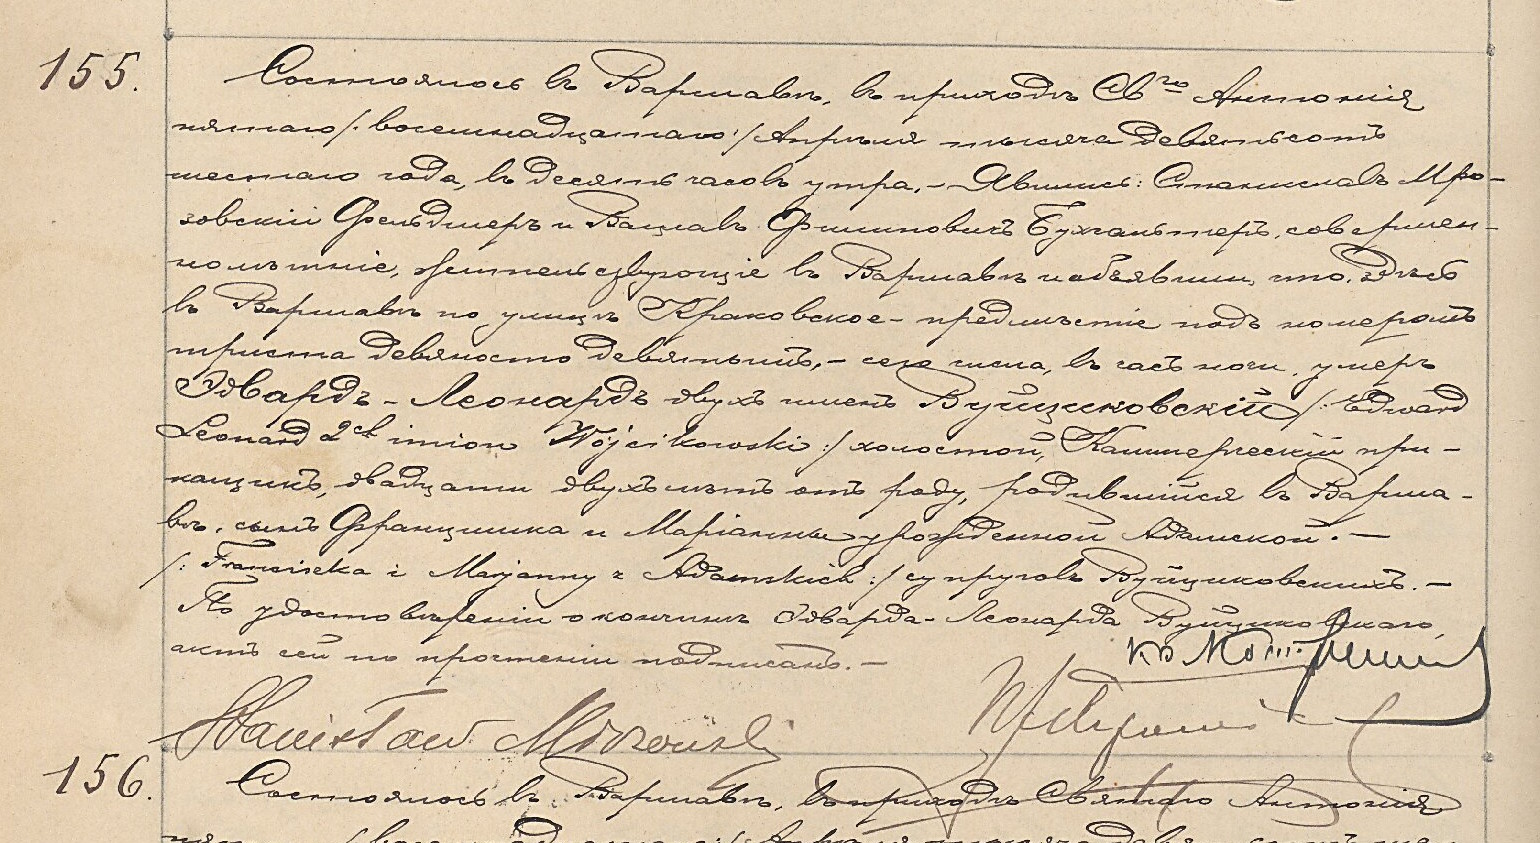 155.
Состоялось въ Варшавѣ, въ приходѣ Св го Антонія
пятаго /: восемнадцатаго :/ Апрѣля тысяча девятьсотъ
шестаго года, въ десять часовъ утра. – Явились: Станиславъ Мро-
зовскій Фельдшеръ и Вацлавъ Филиповичъ Бухгалтеръ, совершен-
нолѣтніе, жительствующіе въ Варшавѣ и объявили, что здѣсь
въ Варшавѣ по улицѣ Краковское-предмѣстіе подъ номеромъ
триста девяносто девятымъ, – сего числа, въ часъ ночи, умеръ
Эдвардъ-Леонардъ двухъ именъ Вуйциковскій /: Edward
Leonard 2ch imion Wójcikowski :/ холостой, Коммерческій при-
кащикъ, двадцати двухъ лѣтъ отъ роду, родившійся въ Варша-
вѣ, сынъ Францишка и Маріанны урожденной Адамской. –
/: Franciszka i Marjanny z Adamskich :/ супруговъ Вуйциковскихъ. –
По удостовѣреніи о кончинѣ Эдварда-Леонарда Вуйциковскаго,
актъ сей по прочтеніи подписанъ. –
Stanisław Mrozowski
156.
Состоялось въ Варшавѣ, въ приходѣ Святаго Антонія